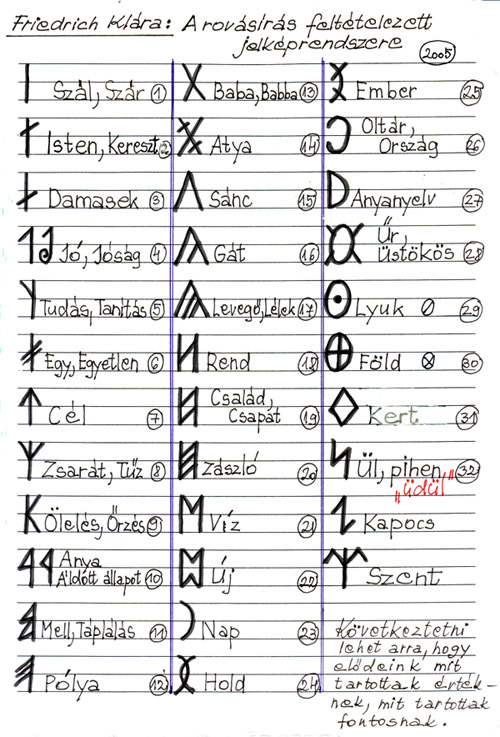 Friedrich Klára: A rovásírás feltételezett
jelképrendszere
2005
Szál, Szár 1
Isten, Kereszt 2
Damasek 3
Jó, Jóság 4
Tudás, Tanítás 5
Egy, Egyetlen 6
Cél 7
Zsarát, Tűz 8
Ölelés, Őrzés 9
Anya
Áldott állapot 10
Mell, Táplálás 11
Pólya 12
Baba, Babba 13
Atya 14
Sánc 15
Gát 16
Levegő, Lélek 17
Rend 18
Család,
Csapat 19
Zászló 20
Víz 21
Új 22
Nap 23
Hold 24
Ember 25
Oltár,
Ország 26
Anyanyelv 27
Űr,
Üstökös 28
Lyuk 29
Föld 30
Kert 31
Ül, pihen, 32
"üdül"
Kapocs
Szent
Következtetni
lehet arra, hogy
elődeink mit
tartottak érték-
nek, mit tartottak
fontosnak.